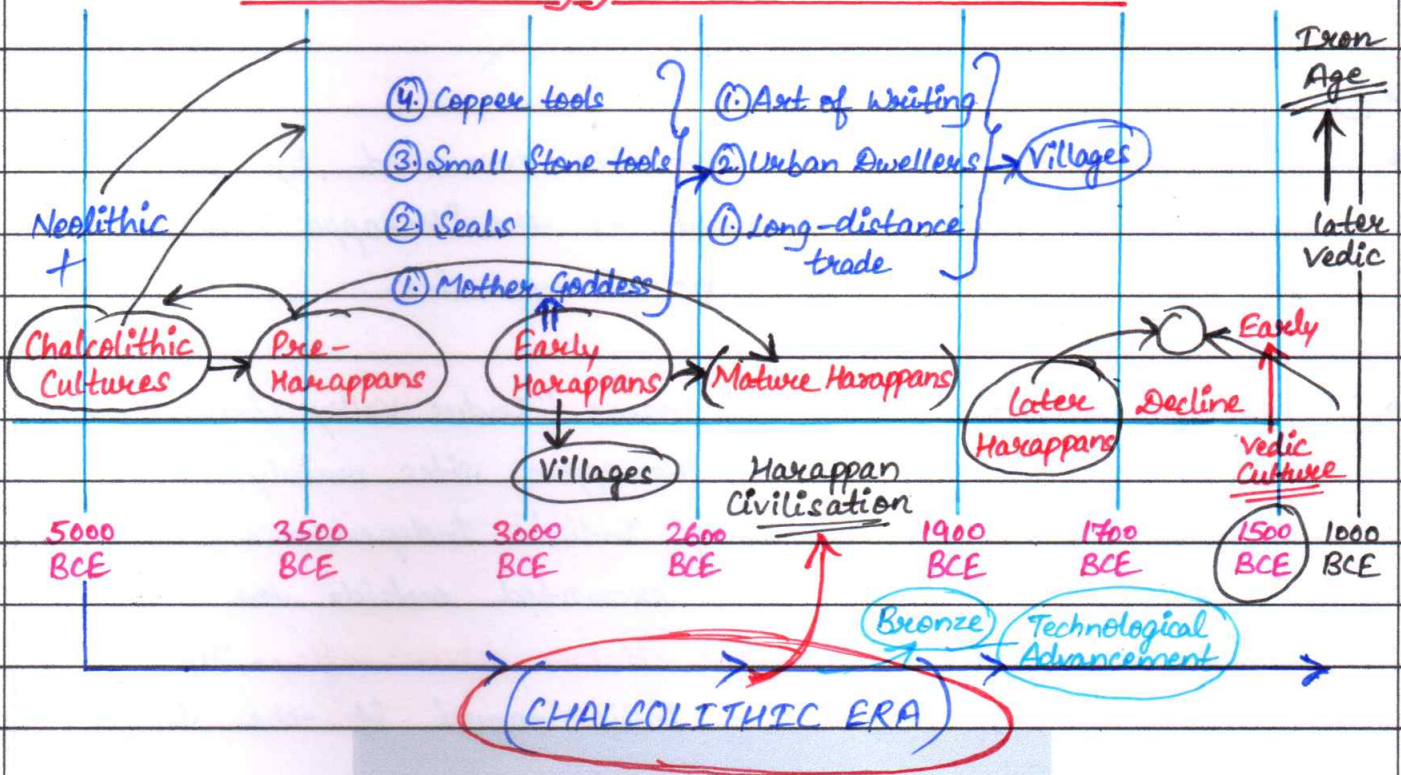 Iron
Age
④ Copper tools
① Art of Writing
③ Small Stone tools
② Urban Dwellers
Villages
Neolithic
+
② Seals
① Long-distance
trade
later
Vedic
① Mother Goddess
Chalcolithic
Cultures
Pre-
Harappans
Early
Harappans
(Mature Harappans)
Later
Harappans
Decline
Early
Vedic
Culture
Villages
Harappan
Civilisation
5000
BCE
3500
BCE
3000
BCE
2600
BCE
1900
BCE
1700
BCE
1500
BCE
1000
BCE
Bronze
Technological
Advancement
(CHALCOLITHIC ERA)